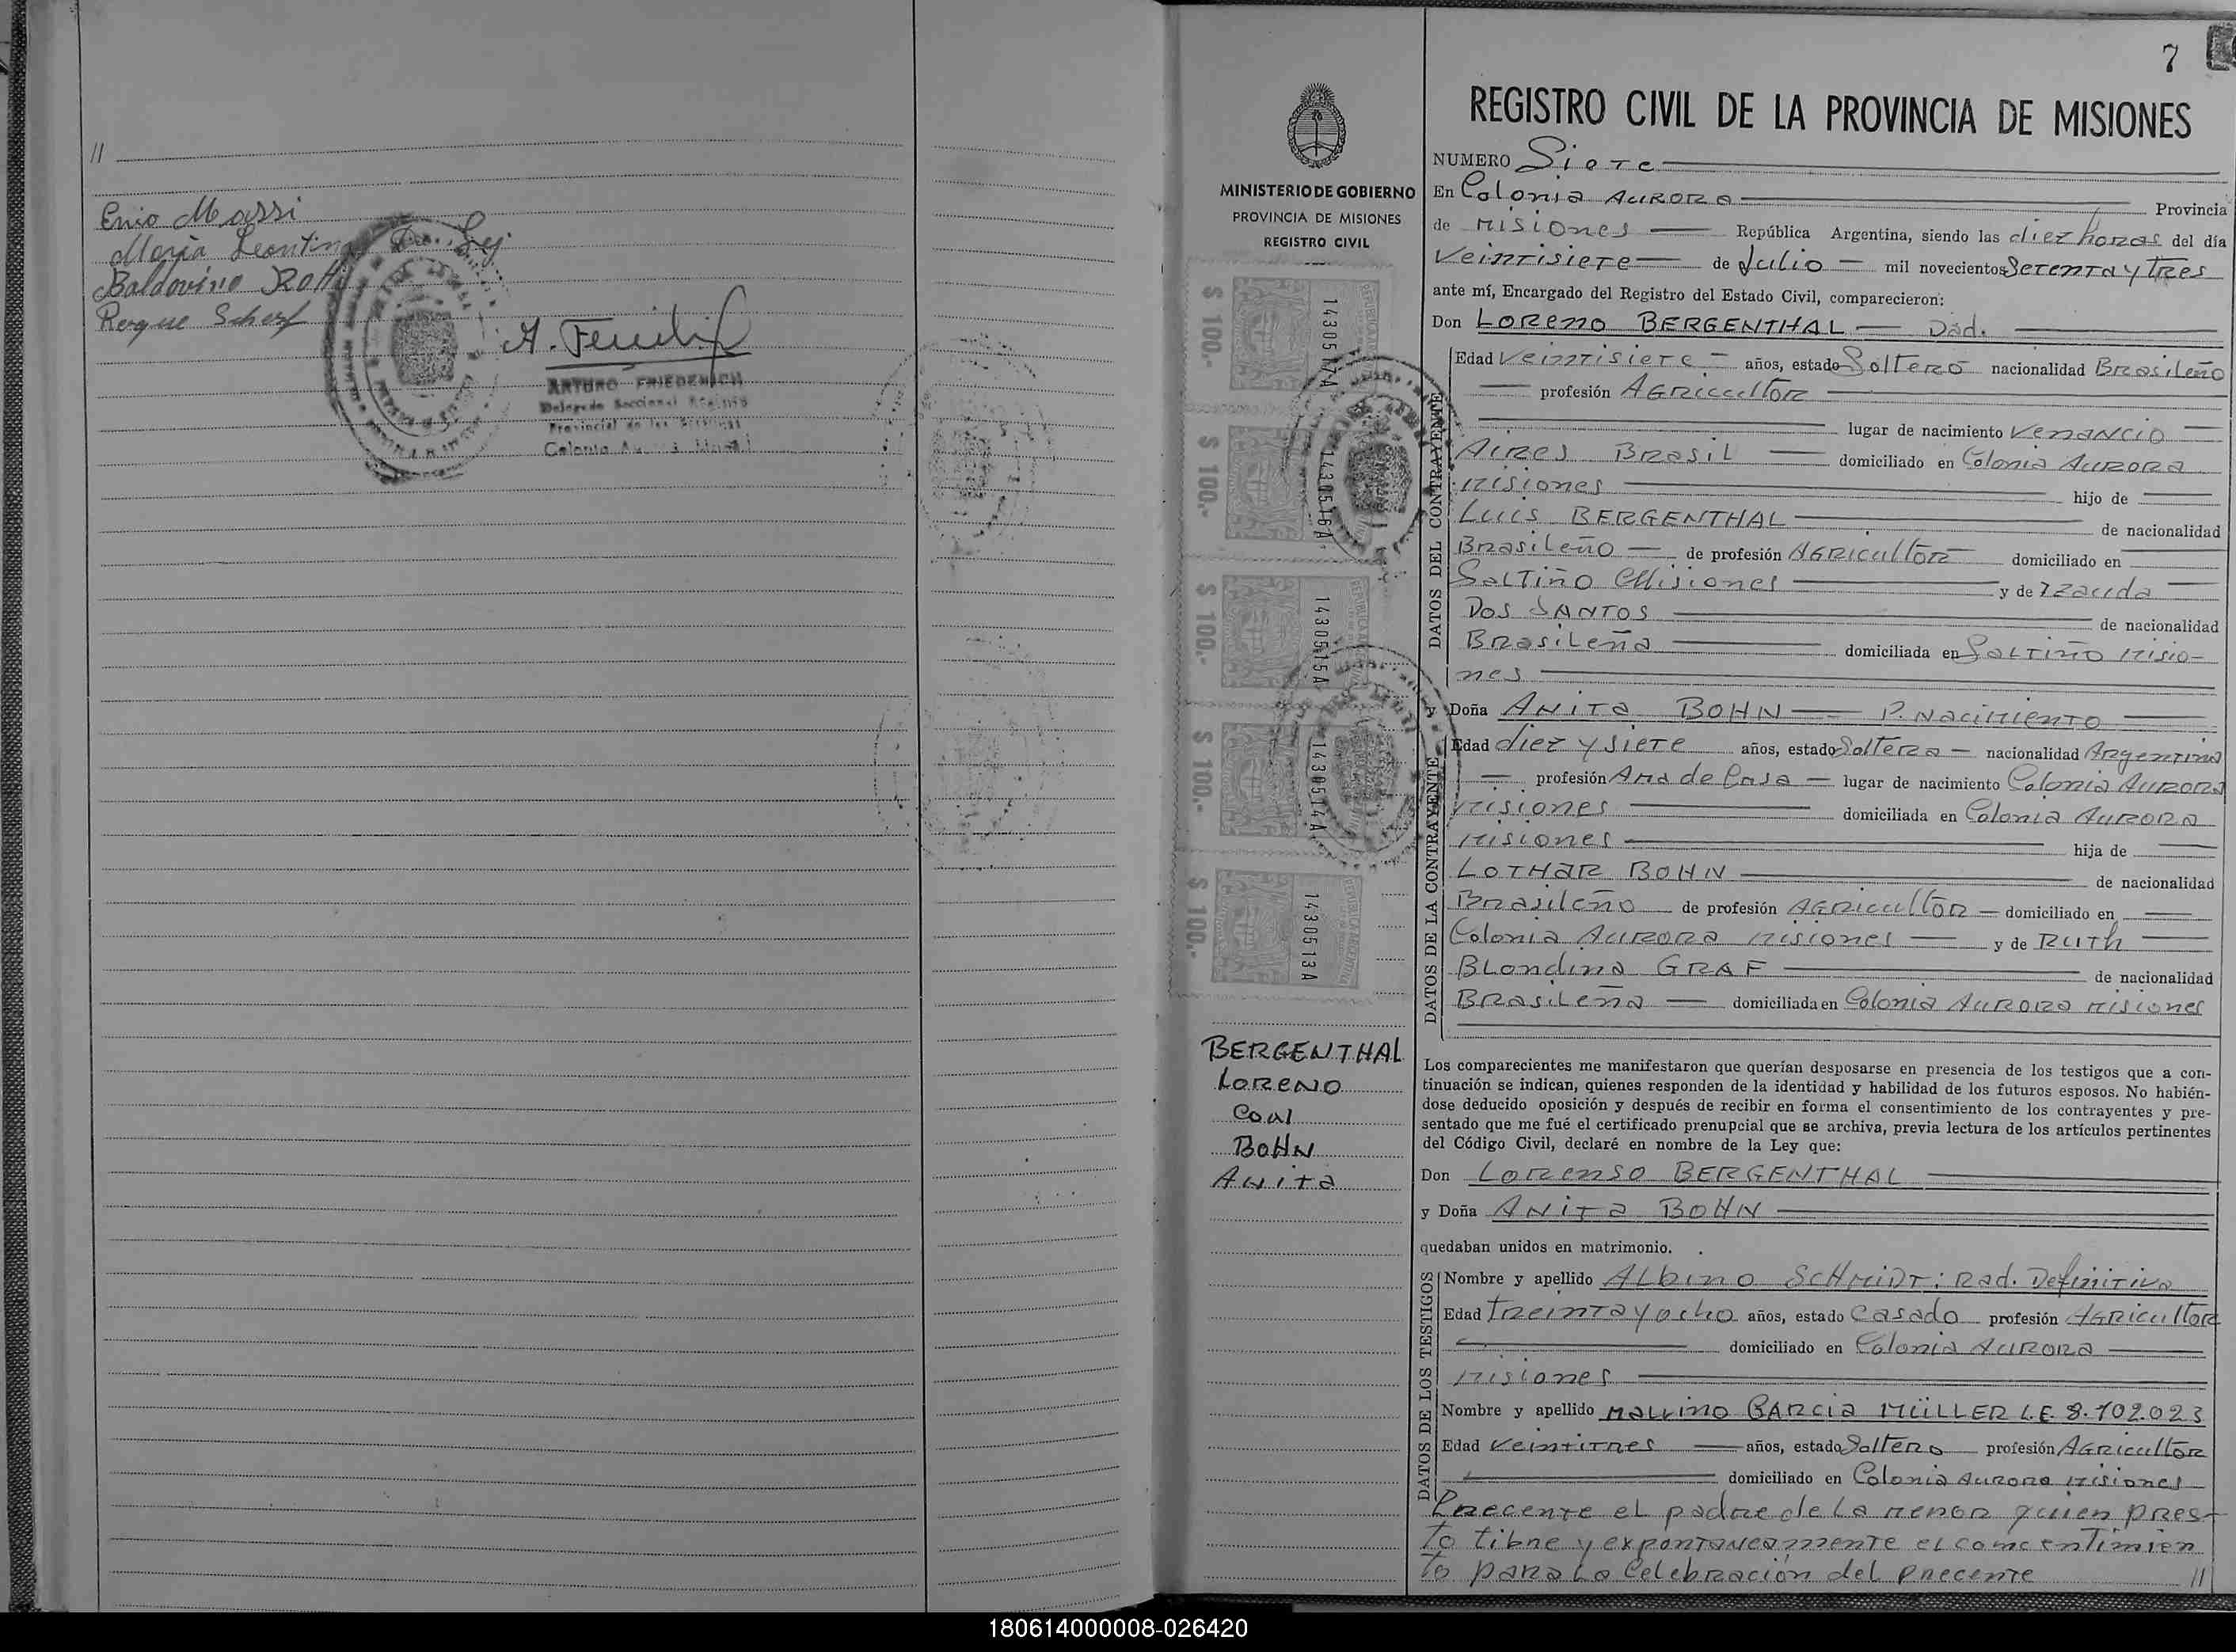 //
Enio Massi
Maria Leontina Da. Ley
Baldovino Rotti
Roque Scherf
ARTURO FRIEDENICH
Delegado Seccional Registro
Provincial de las Personas
Colonia Aurora Misiones
7
REGISTRO CIVIL DE LA PROVINCIA DE MISIONES
MINISTERIO DE GOBIERNO
PROVINCIA DE MISIONES
REGISTRO CIVIL
$ 100.-
1430517A
$ 100.-
1430516A
$ 100.-
1430515A
$ 100.-
1430514A
$ 100.-
1430513A
BERGENTHAL
LORENO
Con
BOHN
ANita
NUMERO Siete
En Colonia AURORA Provincia
de Misiones República Argentina, siendo las diez horas del día
Veintisiete de Julio mil novecientos Setenta y tres
ante mí, Encargado del Registro del Estado Civil, comparecieron:
Don LORENO BERGENTHAL Dad.
DATOS DEL CONTRAYENTE
Edad Veintisiete años, estado Soltero nacionalidad Brasileño
profesión AGRicultor
lugar de nacimiento VenANCiO
AiRes Brasil domiciliado en Colonia AURORA
Misiones hijo de
LUis BERGENTHAL de nacionalidad
Brasileño de profesión AGRicultor domiciliado en
SaLTiño Misiones y de Izauda
Dos SANTOS de nacionalidad
Brasileña domiciliada en SaLTiño Misio-
nes
y Doña ANiTa BOHN P. Nacimiento
DATOS DE LA CONTRAYENTE
Edad diez y siete años, estado Soltera nacionalidad Argentina
profesión Ama de Casa lugar de nacimiento Colonia AURORA
Misiones domiciliada en Colonia AURORA
Misiones hija de
LOTHAR BOHN de nacionalidad
Brasileño de profesión AGRicultor domiciliado en
Colonia AURORA Misiones y de RUTh
BLondina GRAF de nacionalidad
BRasileña domiciliada en Colonia AURORA Misiones
Los comparecientes me manifestaron que querían desposarse en presencia de los testigos que a con-
tinuación se indican, quienes responden de la identidad y habilidad de los futuros esposos. No habién-
dose deducido oposición y después de recibir en forma el consentimiento de los contrayentes y pre-
sentado que me fué el certificado prenupcial que se archiva, previa lectura de los artículos pertinentes
del Código Civil, declaré en nombre de la Ley que:
Don LORenso BERGENTHAL
y Doña ANiTa BOHN
quedaban unidos en matrimonio.
DATOS DE LOS TESTIGOS
Nombre y apellido ALbino SCHMiDT: Rad. Definitiva
Edad Treinta y ocho años, estado Casado profesión AGRicultor
domiciliado en Colonia AURORA
Misiones
Nombre y apellido MaLvino GARcia MÜLLER L.E. 8.102.023
Edad Veintitres años, estado Soltero profesión AGRicultor
domiciliado en Colonia AURORA Misiones
Precente el padre de La menor quien pres-
to libre y expontaneamente el concentimien
to para La Celebración del precente //
180614000008-026420